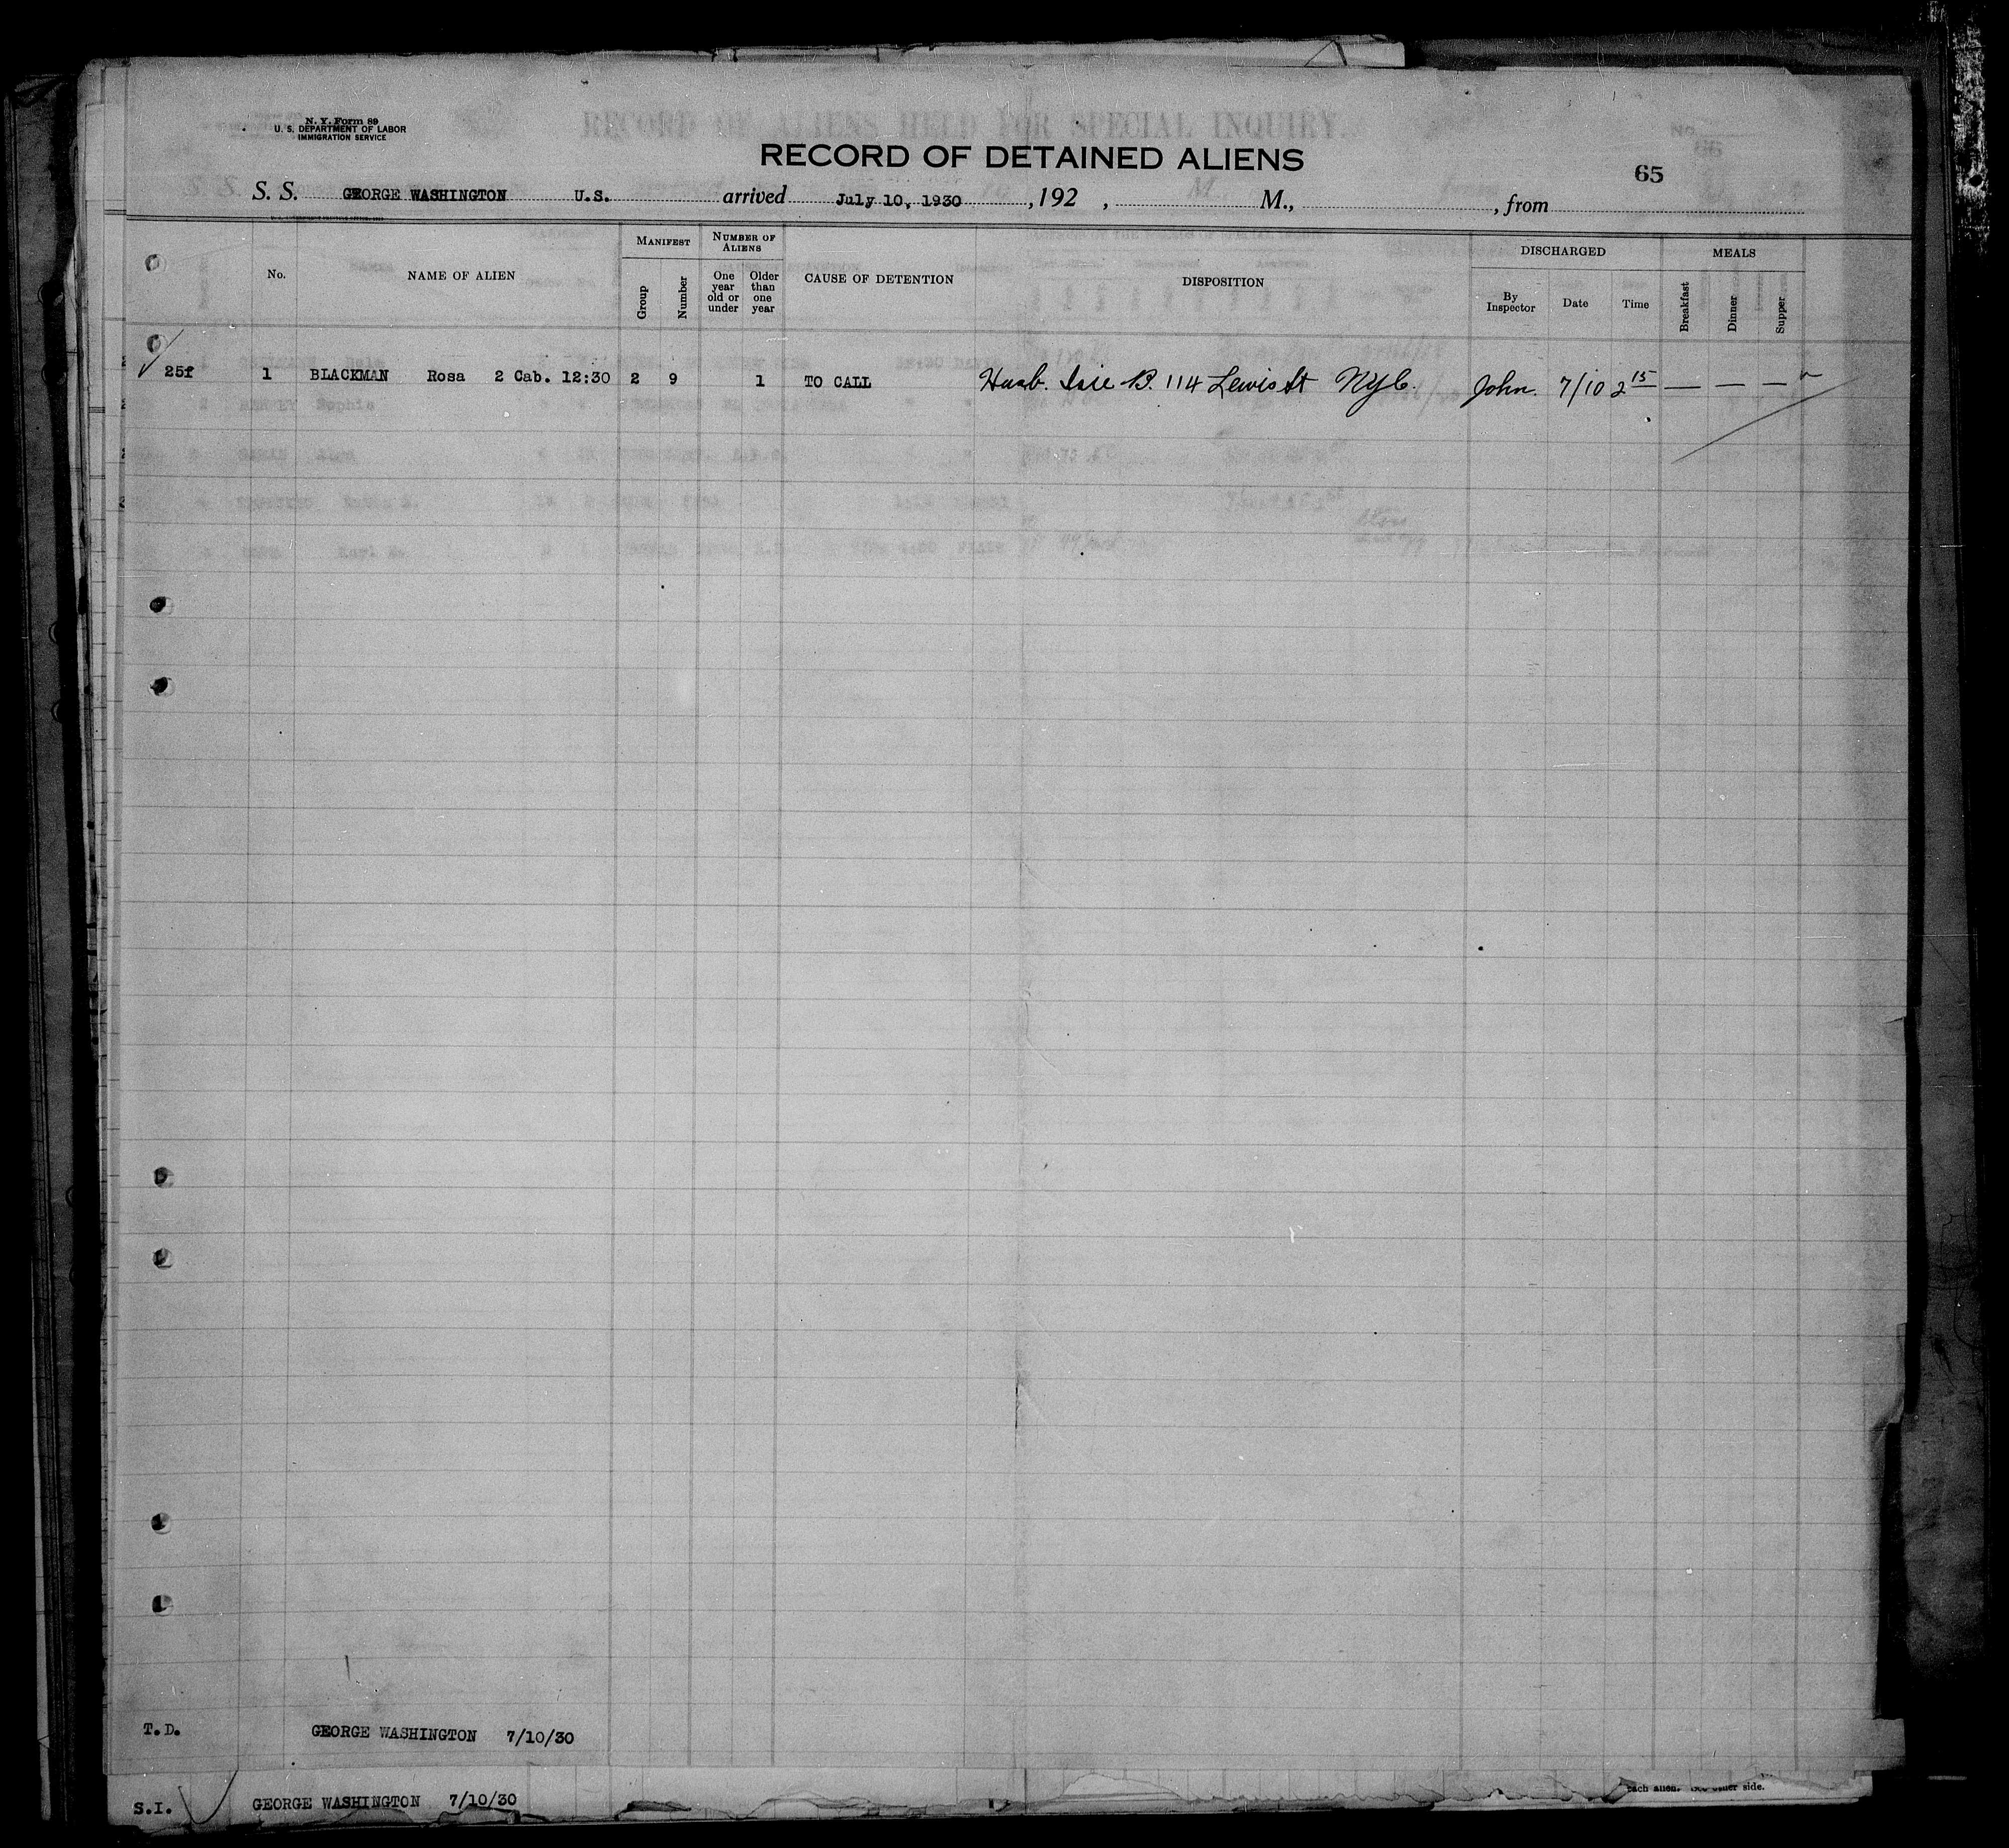 N. Y. Form 89
U. S. DEPARTMENT OF LABOR
IMMIGRATION SERVICE
RECORD OF ALIENS HELD FOR SPECIAL INQUIRY.
RECORD OF DETAINED ALIENS
65
S. S. GEORGE WASHINGTON U.S. arrived July 10, 1930, 192 , M., , from
No. NAME OF ALIEN MANIFEST Group Number NUMBER OF ALIENS One year old or under Older than one year CAUSE OF DETENTION DISPOSITION DISCHARGED By Inspector Date Time MEALS Breakfast Dinner Supper
25f 1 BLACKMAN Rosa 2 Cab. 12:30 2 9 1 TO CALL Husb. Isie B. 114 Lewis St NYC. John. 7/10 2 15 — — —
T.D. GEORGE WASHINGTON 7/10/30
each alien. See other side.
S.I. GEORGE WASHINGTON 7/10/30